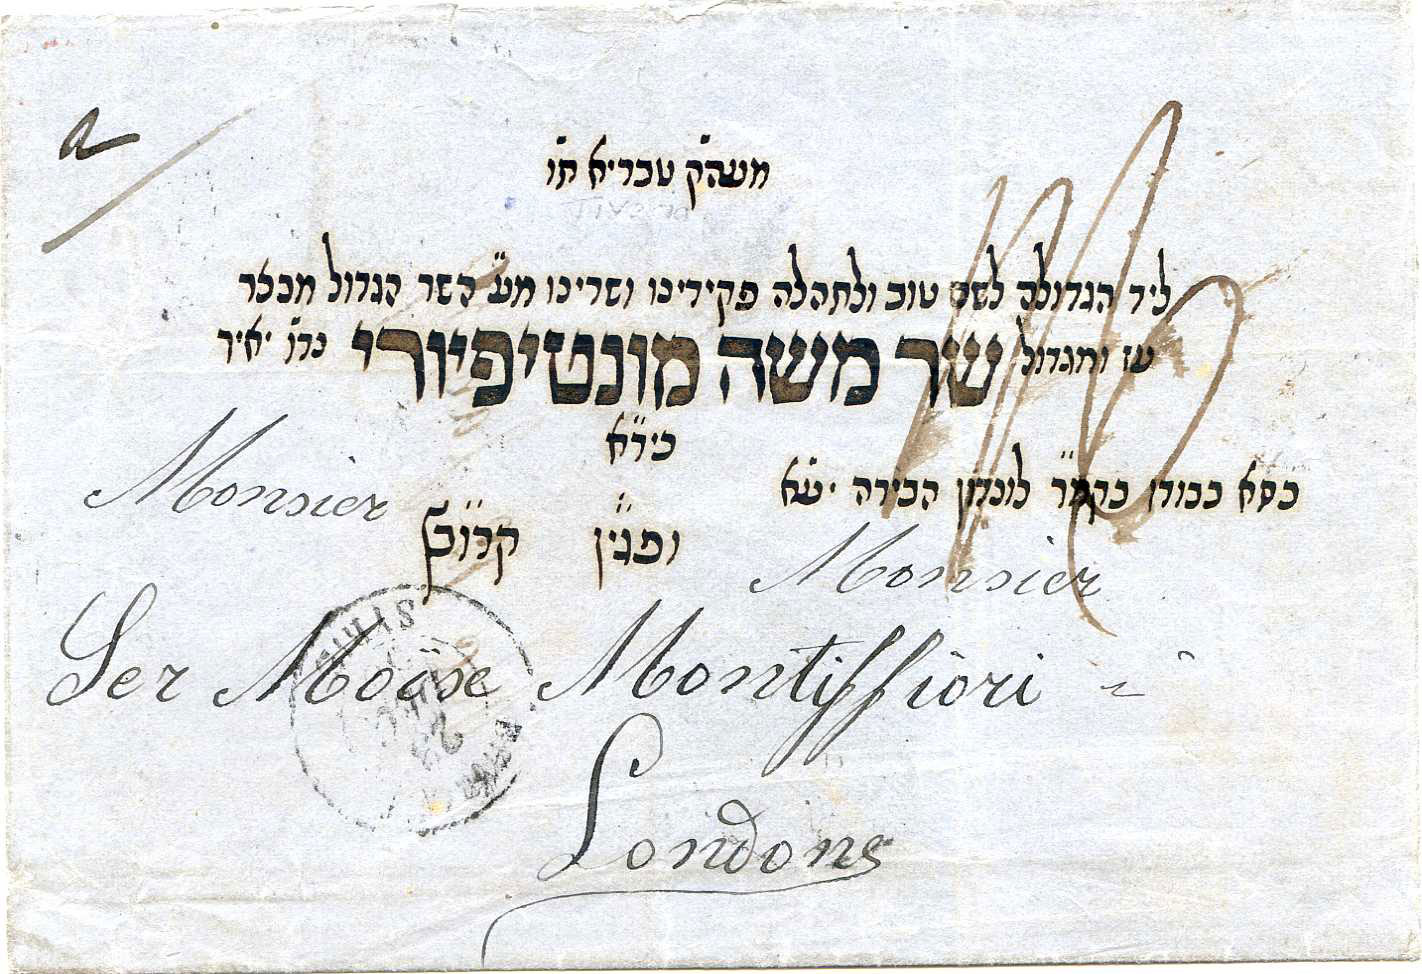 מעהק טבריא תו
ליד הגדולה לשם טוב ולתהלה פקידינו ושרינו מע' השר הגדול מבצר
עז ומגדול שר משה מונטיפיורי נרו יאיר
כיר"א
כסא כבודו בקק"ר לונדון הבירה יע"א
ופג"ין קדו"ץ
Monsier
Monsier
Ser Moïse Montiffiori
Londons